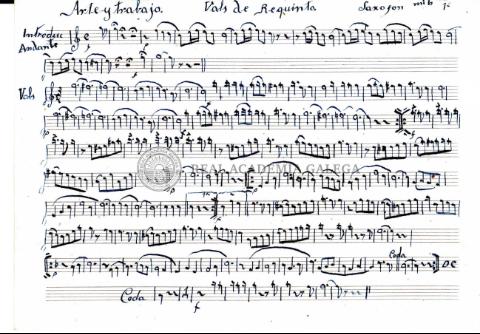 Arte y trabajo. Vals de Requinta Saxofon mib 1º
Introducc
Andante
Vals
REAL ACADEMIA GALEGA
Coda
DC
Coda